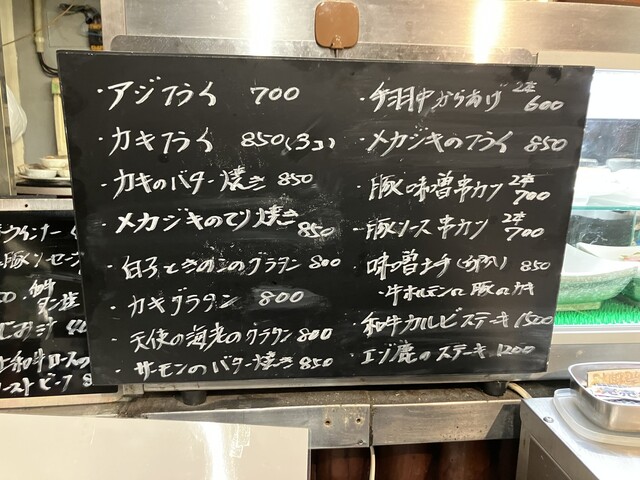 ・アジフライ 700
・カキフライ 850(3コ)
・カキのバター焼き 850
・メカジキのてり焼き 850
・白子ときのこのグラタン 800
・カキグラタン 800
・天使の海老のグラタン 800
・サーモンのバター焼き 850
・手羽中からあげ 2本 600
・メカジキのフライ 850
・豚味噌串カツ 2本 700
・豚ソース串カツ 2本 700
味噌土手 850
・牛ホルモンに豚の
・和牛カルビステーキ 1500
・エゾ鹿のステーキ 1200
ウインナー
豚ソーセージ
和牛ロースの
ローストビーフ